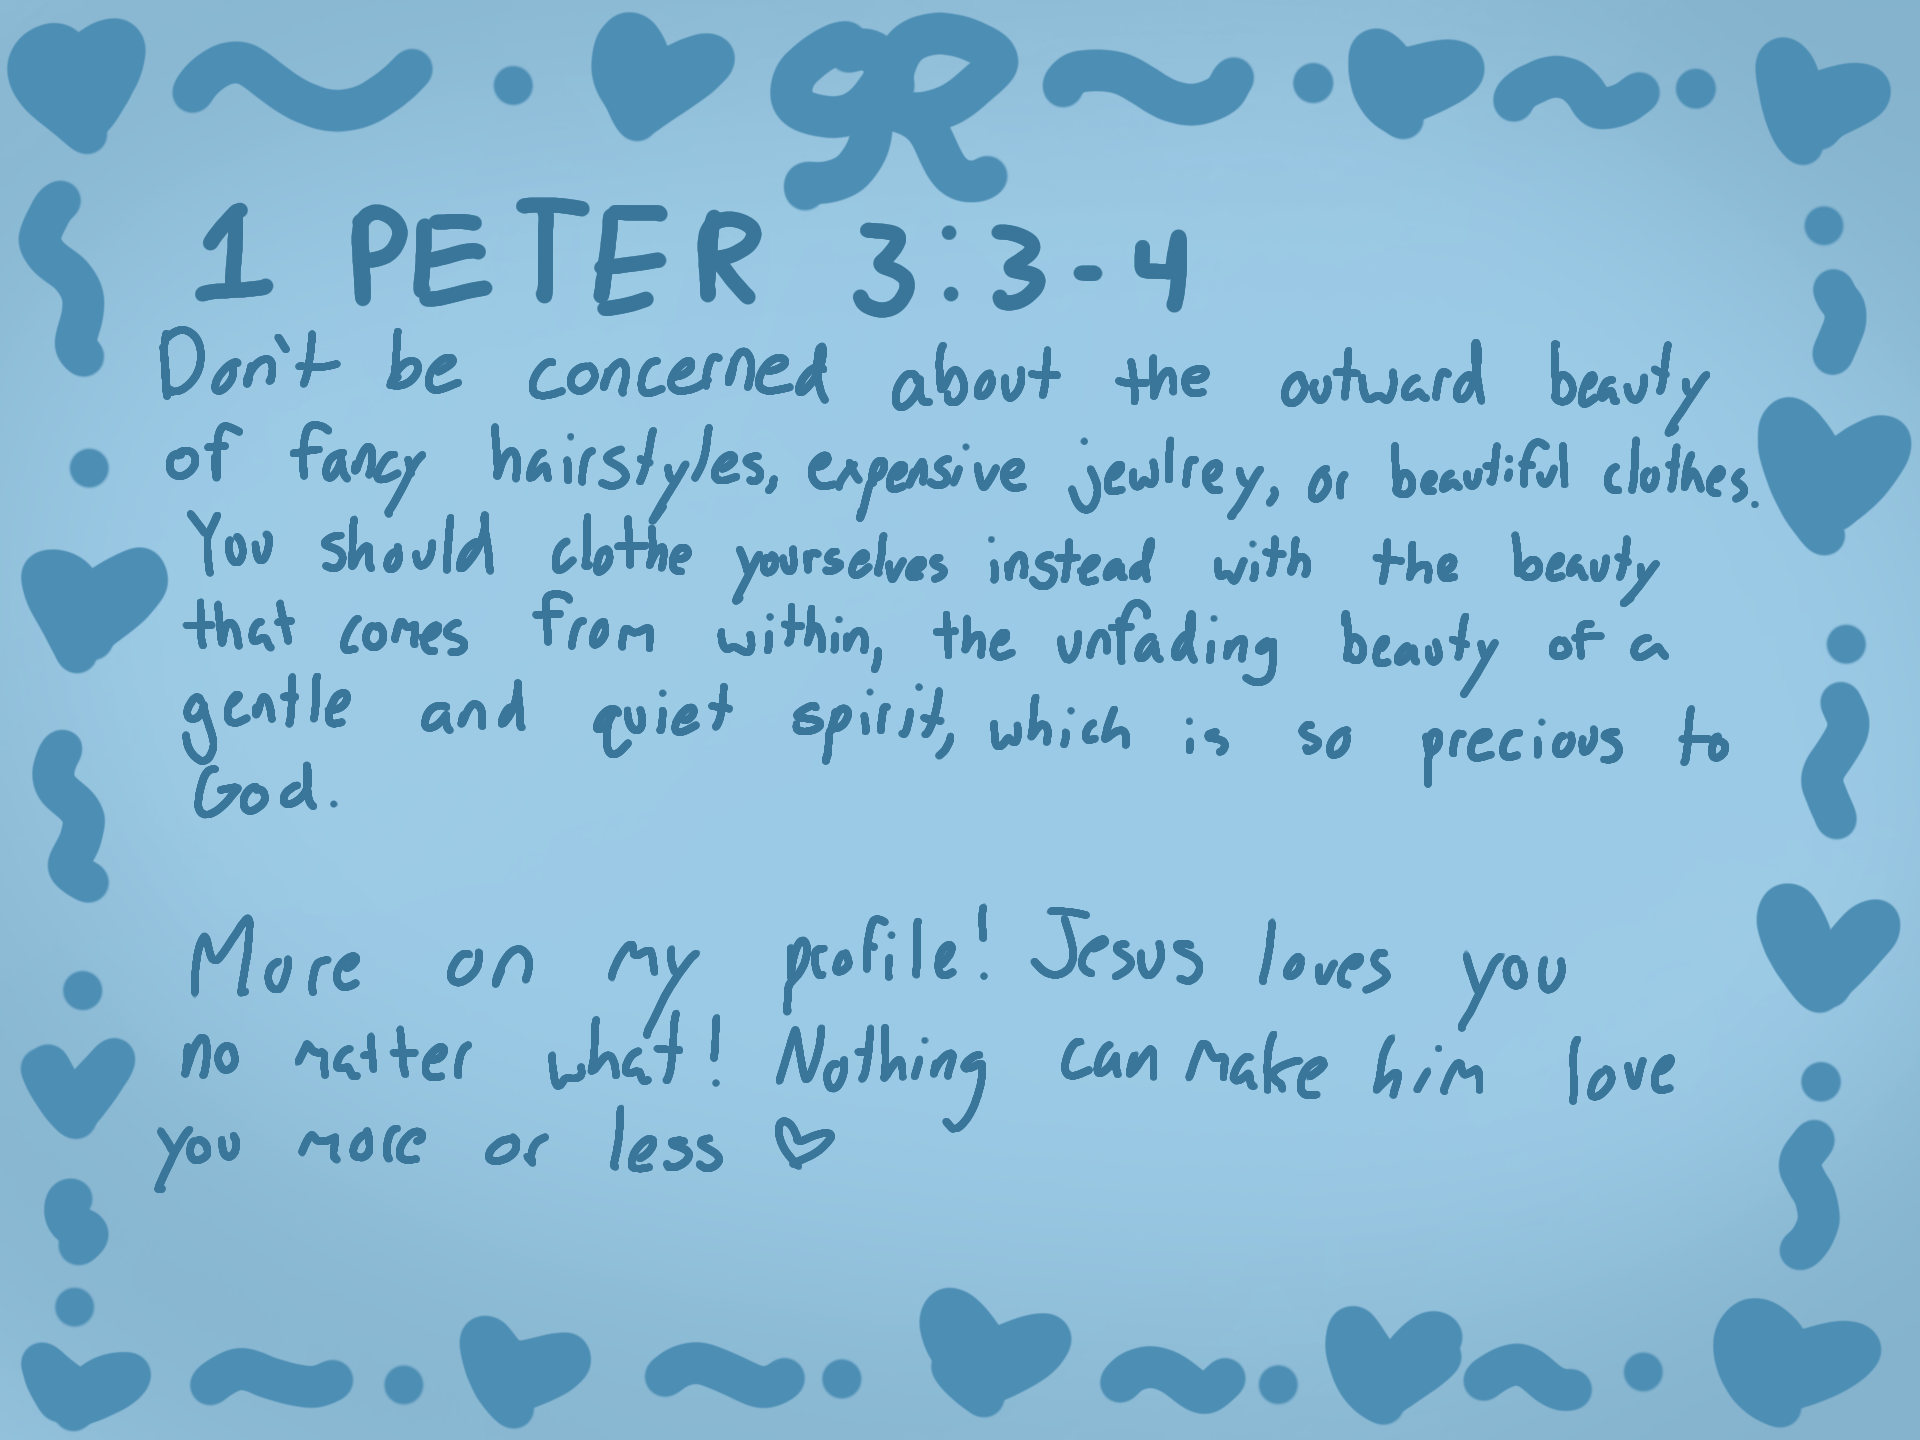 1 PETER 3:3-4
Don't be concerned about the outward beauty
of fancy hairstyles, expensive jewlrey, or beautiful clothes.
You should clothe yourselves instead with the beauty
that comes from within, the unfading beauty of a
gentle and quiet spirit, which is so precious to
God.
More on my profile! Jesus loves you
no matter what! Nothing can make him love
you more or less ♡